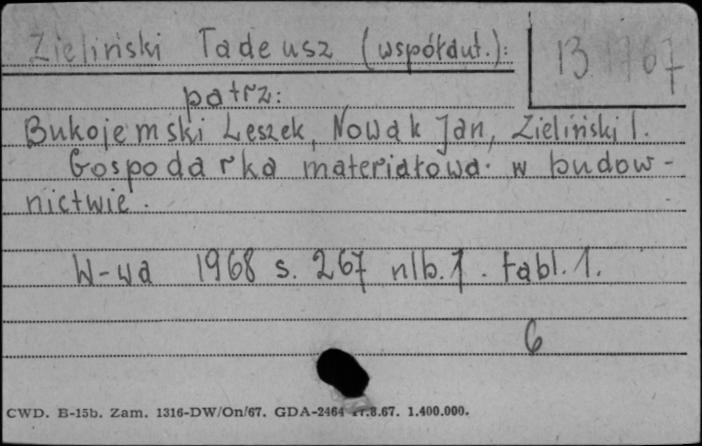 Zieliński Tadeusz (współaut.):
13 1767
patrz:
Bukojemski Leszek, Nowak Jan, Zieliński T.
Gospodarka materiałowa w budow-
nictwie.
W-wa 1968 s. 267 nlb. 1. tabl. 1.
6
CWD. B-15b. Zam. 1316-DW/On/67. GDA-2464 .8.67. 1.400.000.